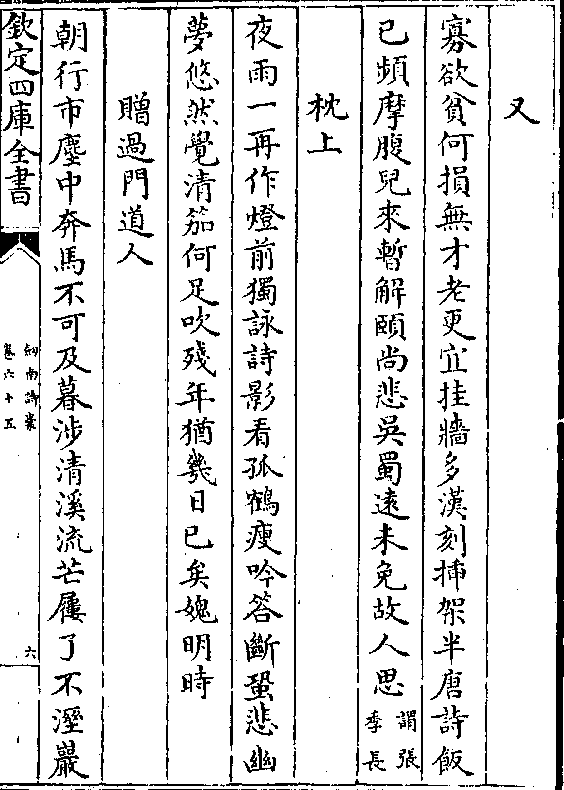 又
寡欲貧何損無才老更宜挂牆多漢刻揷架半唐詩飯
已頻摩腹兒來暫解頤尚悲吳蜀逺未免故人思謂張季長
枕上
夜雨一再作燈前獨詠詩影看孤鶴瘦吟答斷蛩悲幽
夢悠然覺清笳何足吹殘年猶幾日已矣媿明時
贈過門道人
朝行市塵中奔馬不可及暮涉清溪流芒屨了不溼巖
欽定四庫全書
劍南詩藁
卷六十五
六